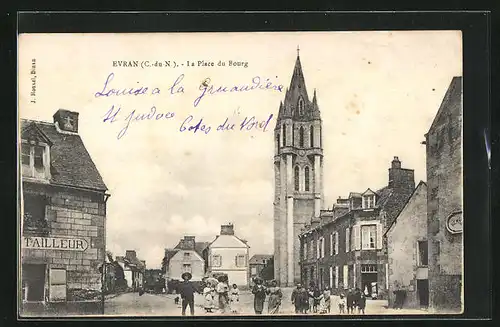 EVRAN (C.-du N.). - La Place du Bourg
Louise a la Gruaudiere
St Judoce
Cotes du Nord
J. Rouxel, Dinan
TAILLEUR